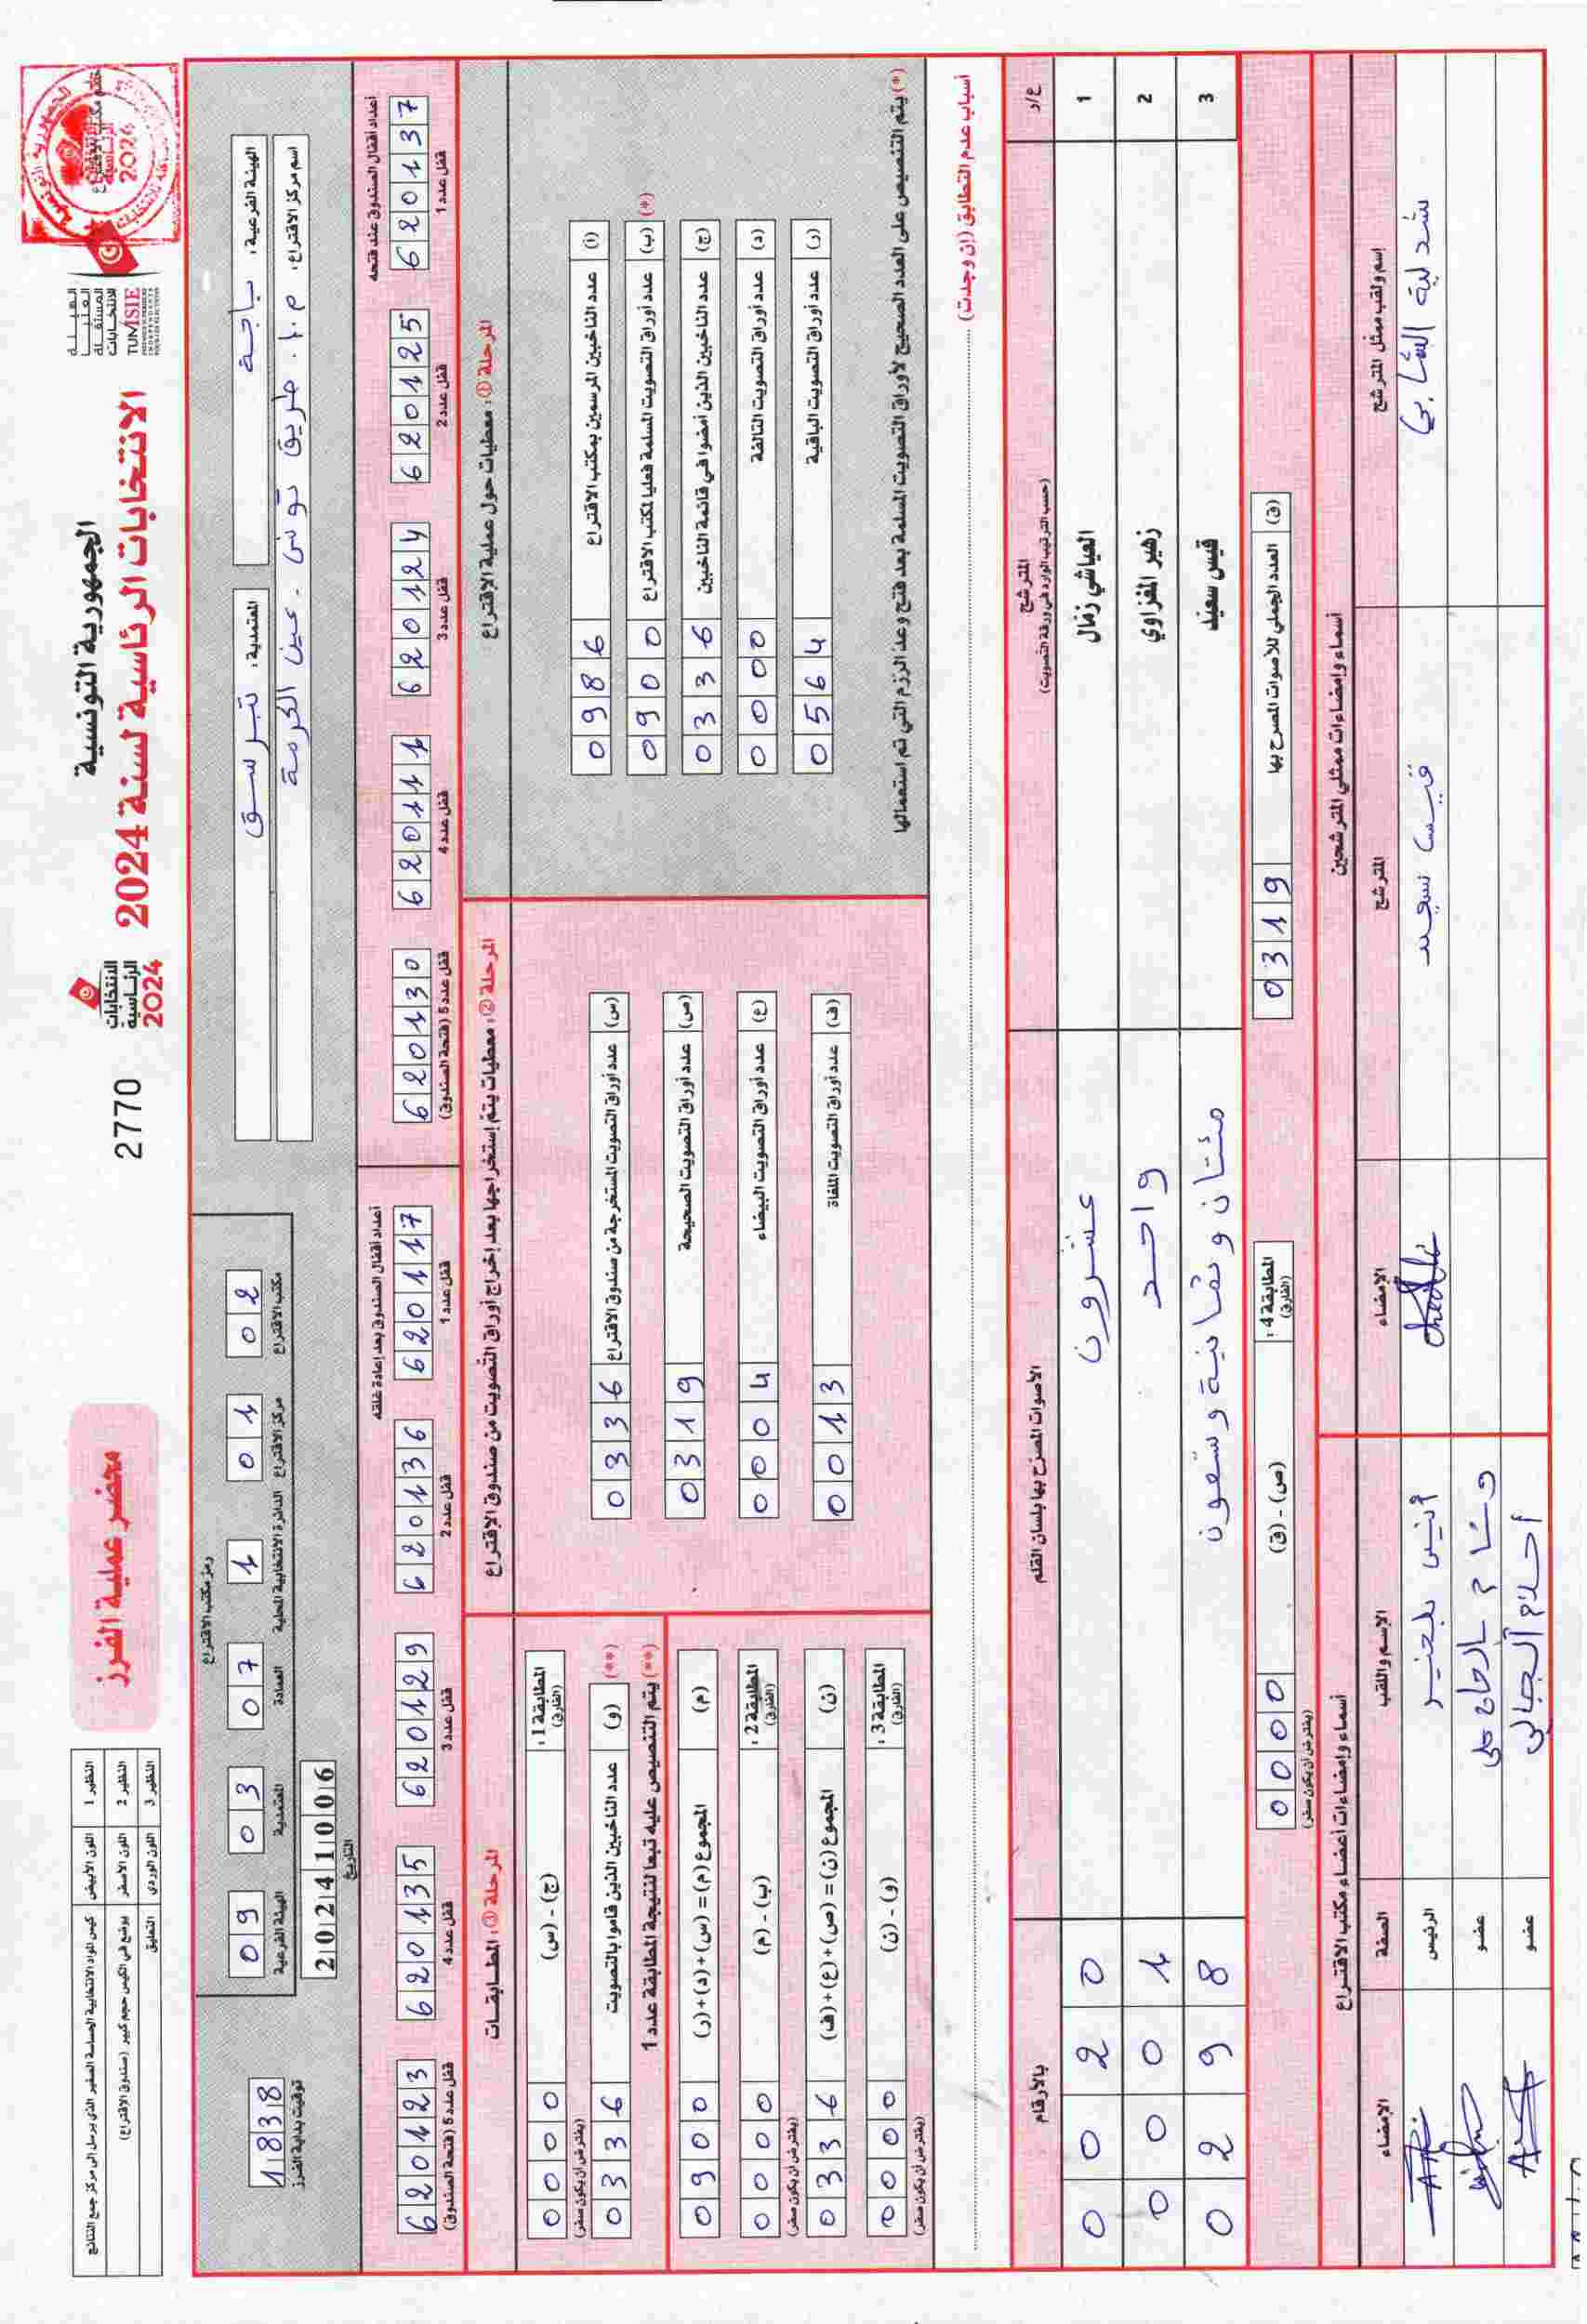 الجمهورية التونسية
الانتخابات الرئاسية لسنة 2024
الهيئة العليا المستقلة للانتخابات
TUNISIE
الانتخابات الرئاسية 2024
2770
محضر عملية الفرز
النظير 1 اللون الأبيض كيس المواد الانتخابية الحساسة الصغير الذي يرسل إلى مركز جمع النتائج
النظير 2 اللون الأصفر يوضع في الكيس حجم كبير (صندوق الاقتراع)
النظير 3 اللون الوردي التعليق
الهيئة الفرعية: باجة
المعتمدية: تبرسق
اسم مركز الاقتراع: م.إ. طريق تونس - عين الكرمة
رمز مكتب الاقتراع
مكتب الاقتراع 02
مركز الاقتراع 01
الدائرة الانتخابية المحلية 1
العمادة 07
المعتمدية 03
الهيئة الفرعية 09
التاريخ 20241006
توقيت بداية الفرز 1838
أعداد أقفال الصندوق عند فتحه
620137 قفل عدد 1
620125 قفل عدد 2
620124 قفل عدد 3
620111 قفل عدد 4
620130 قفل عدد 5 (فتحة الصندوق)
أعداد أقفال الصندوق بعد إعادة غلقه
620117 قفل عدد 1
620136 قفل عدد 2
620129 قفل عدد 3
620135 قفل عدد 4
620123 قفل عدد 5 (فتحة الصندوق)
المرحلة ①: معطيات حول عملية الاقتراع
(أ) عدد الناخبين المرسمين بمكتب الاقتراع 0986
(*) (ب) عدد أوراق التصويت المسلمة فعليا لمكتب الاقتراع 0900
(ج) عدد الناخبين الذين أمضوا في قائمة الناخبين 0336
(د) عدد أوراق التصويت التالفة 0000
(ر) عدد أوراق التصويت الباقية 0564
(*) يتم التنصيص على العدد الصحيح لأوراق التصويت المسلمة بعد فتح وعد الرزم التي تم استعمالها
المرحلة ②: معطيات يتم إستخراجها بعد إخراج أوراق التصويت من صندوق الاقتراع
(س) عدد أوراق التصويت المستخرجة من صندوق الاقتراع 0336
(ص) عدد أوراق التصويت الصحيحة 0319
(ع) عدد أوراق التصويت البيضاء 0004
(ف) عدد أوراق التصويت الملغاة 0013
المرحلة ③: المطابقات
المطابقة 1: (الفارق) (ج) - (س) 0000
(يفترض أن يكون صفر)
(**) (و) عدد الناخبين الذين قاموا بالتصويت 0336
(**) يتم التنصيص عليه تبعا لنتيجة المطابقة عدد 1
(م) المجموع (م) = (س)+(د)+(ر) 0900
المطابقة 2: (الفارق) (ب) - (م) 0000
(يفترض أن يكون صفر)
(ن) المجموع (ن) = (ص)+(ع)+(ف) 0336
المطابقة 3: (الفارق) (و) - (ن) 0000
(يفترض أن يكون صفر)
أسباب عدم التطابق (إن وجدت)
ع/د المترشح (حسب الترتيب الوارد في ورقة التصويت) الأصوات المصرح بها بلسان القلم بالأرقام
1 العياشي زمال عشرون 0020
2 زهير المغزاوي واحد 0001
3 قيس سعيد مئتان وثمانية وتسعون 0298
(ق) العدد الجملي للأصوات المصرح بها 0319
المطابقة 4: (الفارق) (ص) - (ق) 0000
(يفترض أن يكون صفر)
أسماء وإمضاءات ممثلي المترشحين
إسم ولقب ممثل المترشح المترشح الإمضاء
شدلية الشابي قيس سعيد
أسماء وإمضاءات أعضاء مكتب الاقتراع
الإسم واللقب الصفة الإمضاء
أنيس بلخير الرئيس
وسام الحاج علي عضو
أحلام الجبالي عضو